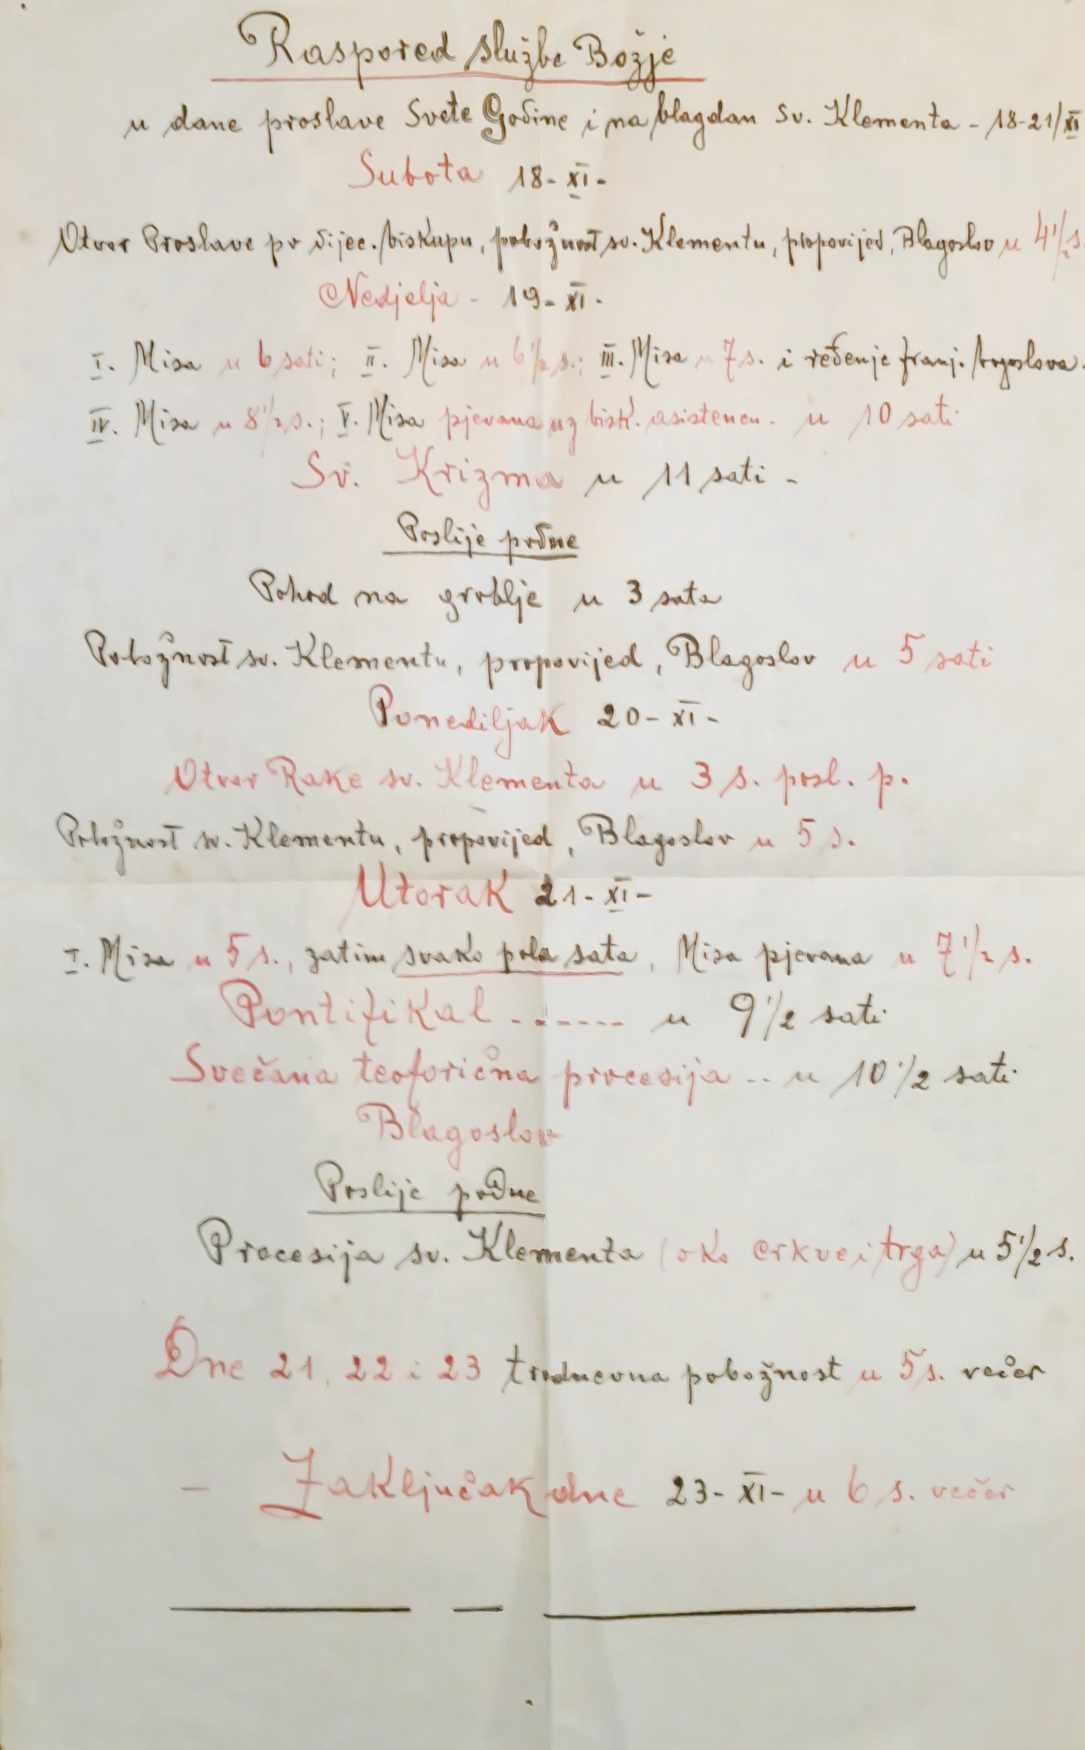 Raspored službe Božje
u dane proslave Svete Godine i na blagdan sv. Klementa - 18-21/XI
Subota 18-XI-
Otvor Proslave po dijec. biskupu, pobožnost sv. Klementu, propovijed, Blagoslov u 4 1/2 s
Nedjelja - 19-XI-
I. Misa u 6 sati; II. Misa u 6 1/2 s.; III. Misa u 7 s. i ređenje franj. bogoslova.
IV. Misa u 8 1/2 s.; V. Misa pjevana uz bisk. asistencu. u 10 sati
Sv. Krizma u 11 sati -
Poslije podne
Pohod na groblje u 3 sata
Pobožnost sv. Klementu, propovijed, Blagoslov u 5 sati
Ponediljak 20-XI-
Otvor Rake sv. Klementa u 3 s. posl. p.
Pobožnost sv. Klementu, propovijed, Blagoslov u 5 s.
Utorak 21-XI-
I. Misa u 5 s., zatim svako pola sata, Misa pjevana u 7 1/2 s.
Pontifikal ------- u 9 1/2 sati
Svečana teoforična procesija -- u 10 1/2 sati
Blagoslov
Poslije podne
Procesija sv. Klementa (oko crkve i trga) u 5 1/2 s.
Dne 21, 22 i 23 trodnevna pobožnost u 5 s. večer
- Zaključak dne 23-XI- u 6 s. večer